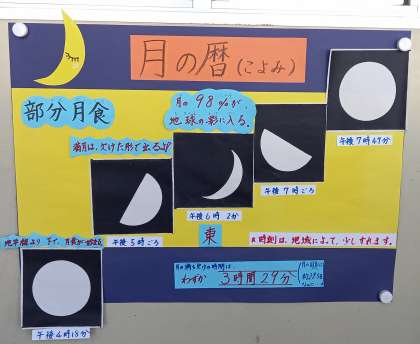 月の暦(こよみ)
部分月食
月の 98%が、
地球の影に入る。
満月は、欠けた形で出るよ!
午後7時47分
午後7時ごろ
午後6時 2分
午後5時ごろ
東
※時刻は、地域によって、少しずれます。
地平線より下で、月食が始まる。
月の満ち欠けの時間は、
わずか 3時間29分
午後4時18分